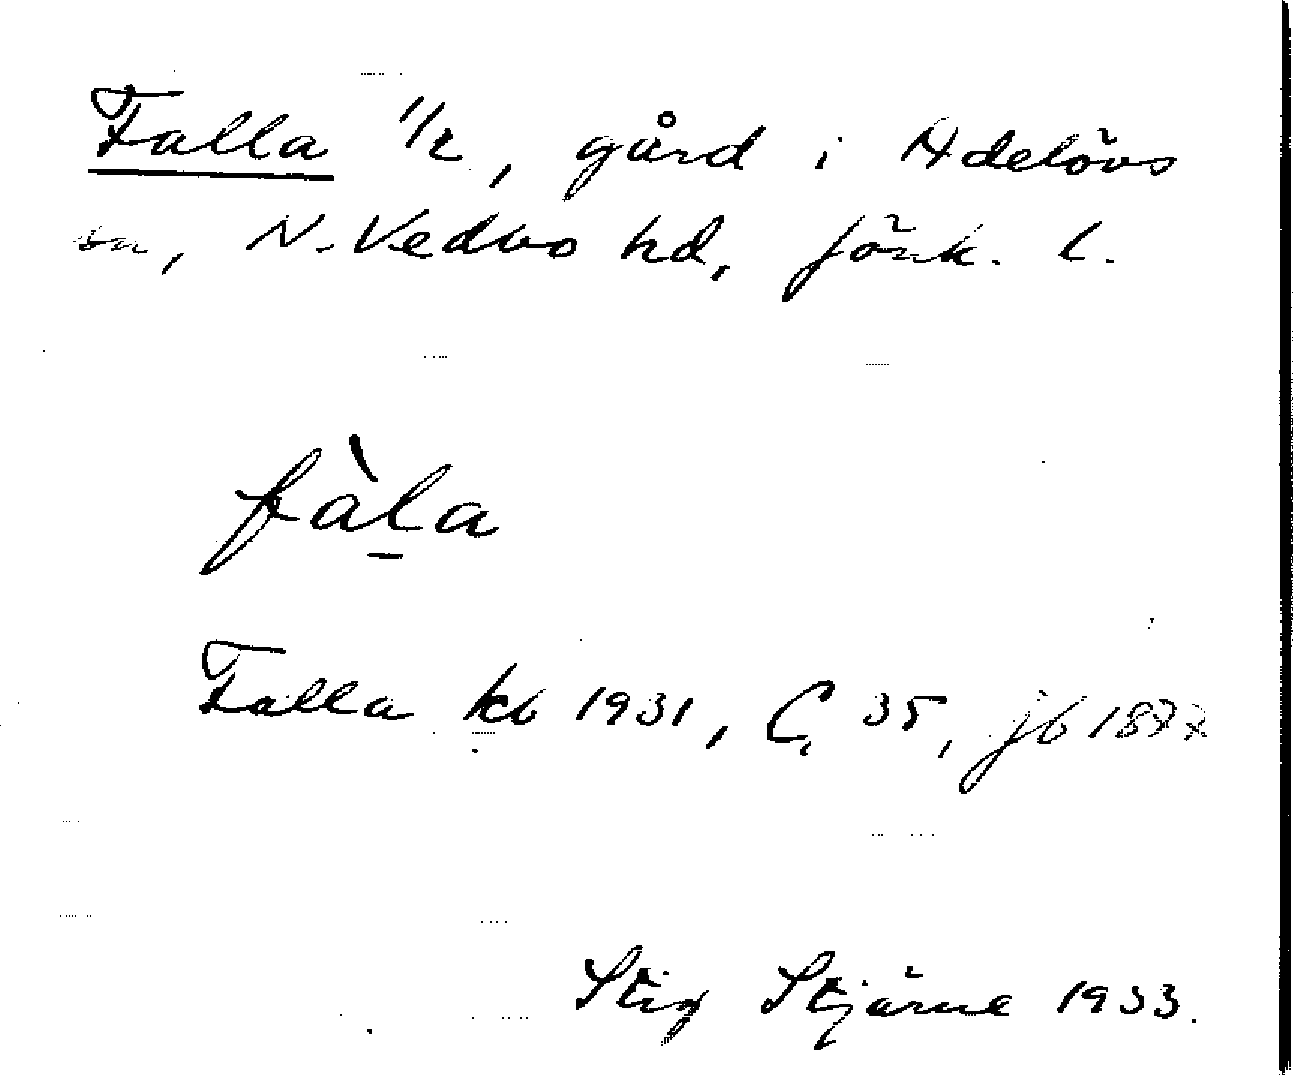 Falla 1/2, gård i Adelövs
sn, N. Vedbo hd, Jönk. l.
fàl̠a
Falla kb 1931, C, 35, jb 1877
Stig Stjärne 1933.